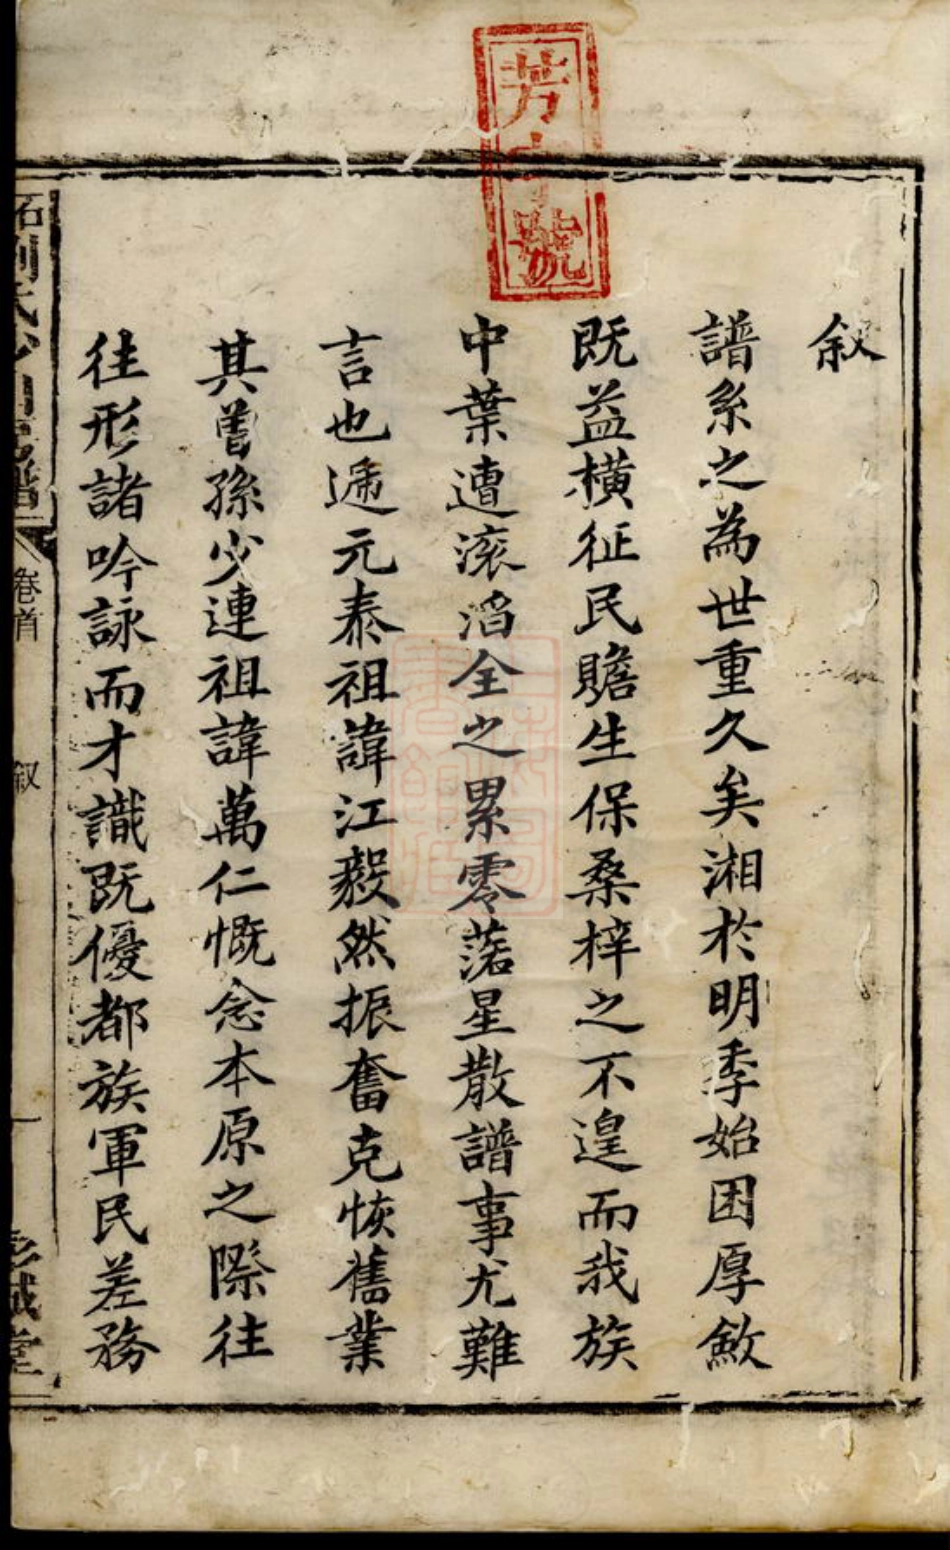 叙
譜系之為世重久矣湘於明季始困厚斂
既益橫征民贍生保桑梓之不遑而我族
中葉遭滚滔全之累零落星散譜事尤難
言也遞元泰祖諱江毅然振奮克恢舊業
其曾孫少連祖諱萬仁慨念本原之際往
往形諸吟詠而才識既優都族軍民差務
石荊氏
譜
卷首
叙
一
彭城堂
芳
號